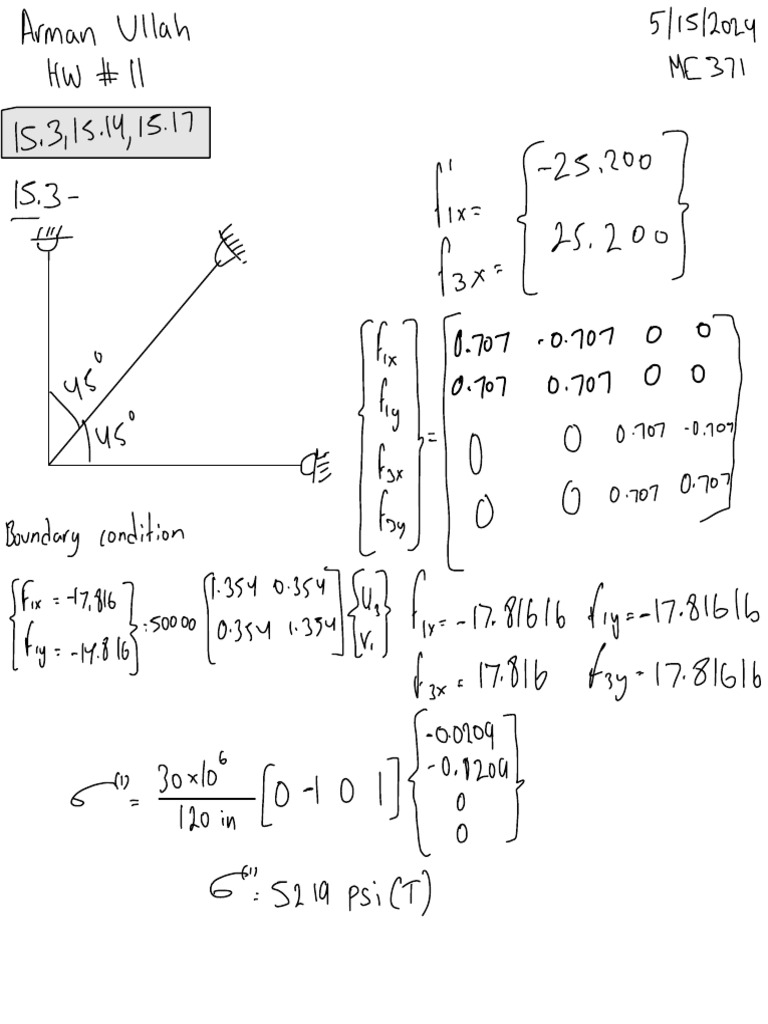 Arman Ullah
5/15/2024
HW # 11
ME 371
15.3, 15.14, 15.17
15.3 -
45°
45°
f'1x = { -25.200
f3x = 25.200 }
{ f1x f1y f3x f3y } = [
0.707 -0.707 0 0
0.707 0.707 0 0
0 0 0.707 -0.707
0 0 0.707 0.707 ]
Boundary condition
{ F1x = -17.816
F1y = -17.816 } = 50000 [ 1.354 0.354
0.354 1.354 ] { U1 V1 }
f1x = -17.816 lb f1y = -17.816 lb
f3x = 17.816 f3y = 17.816 lb
σ(1) = 30×10^6 / 120 in [0 -1 0 1] { -0.0209
-0.0209
0
0 }
σ(1) = 5219 psi (T)